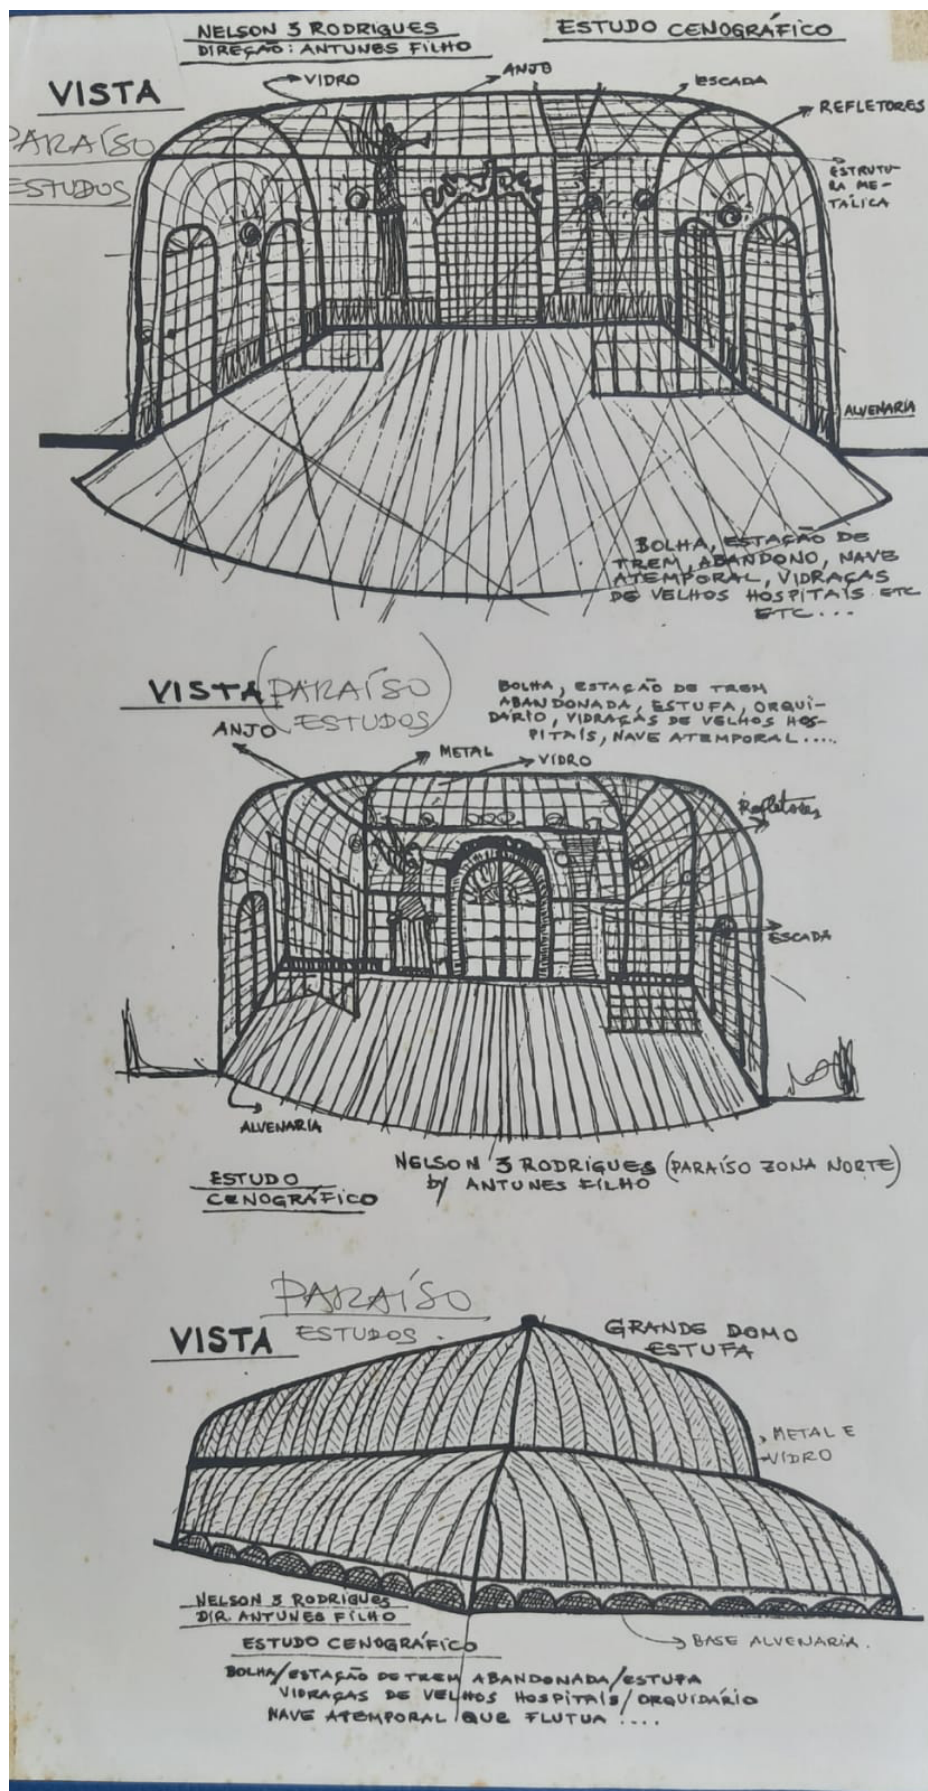 NELSON 3 RODRIGUES
DIREÇÃO: ANTUNES FILHO
ESTUDO CENOGRÁFICO
VISTA
PARAÍSO
ESTUDOS
VIDRO
ANJO
ESCADA
REFLETORES
ESTRUTU-
RA ME-
TÁLICA
ALVENARIA
BOLHA, ESTAÇÃO DE
TREM, ABANDONO, NAVE
ATEMPORAL, VIDRAÇAS
DE VELHOS HOSPITAIS ETC
ETC...
VISTA (PARAÍSO
ESTUDOS)
ANJO
BOLHA, ESTAÇÃO DE TREM
ABANDONADA, ESTUFA, ORQUI-
DÁRIO, VIDRAÇAS DE VELHOS HOS-
PITAIS, NAVE ATEMPORAL....
METAL
VIDRO
Refletores
ESCADA
ALVENARIA
ESTUDO
CENOGRÁFICO
NELSON 3 RODRIGUES (PARAÍSO ZONA NORTE)
by ANTUNES FILHO
PARAÍSO
VISTA ESTUDOS.
GRANDE DOMO
ESTUFA
METAL E
VIDRO
NELSON 3 RODRIGUES
DIR. ANTUNES FILHO
ESTUDO CENOGRÁFICO
BASE ALVENARIA.
BOLHA/ESTAÇÃO DE TREM ABANDONADA/ESTUFA
VIDRAÇAS DE VELHOS HOSPITAIS/ORQUIDÁRIO
NAVE ATEMPORAL QUE FLUTUA ....